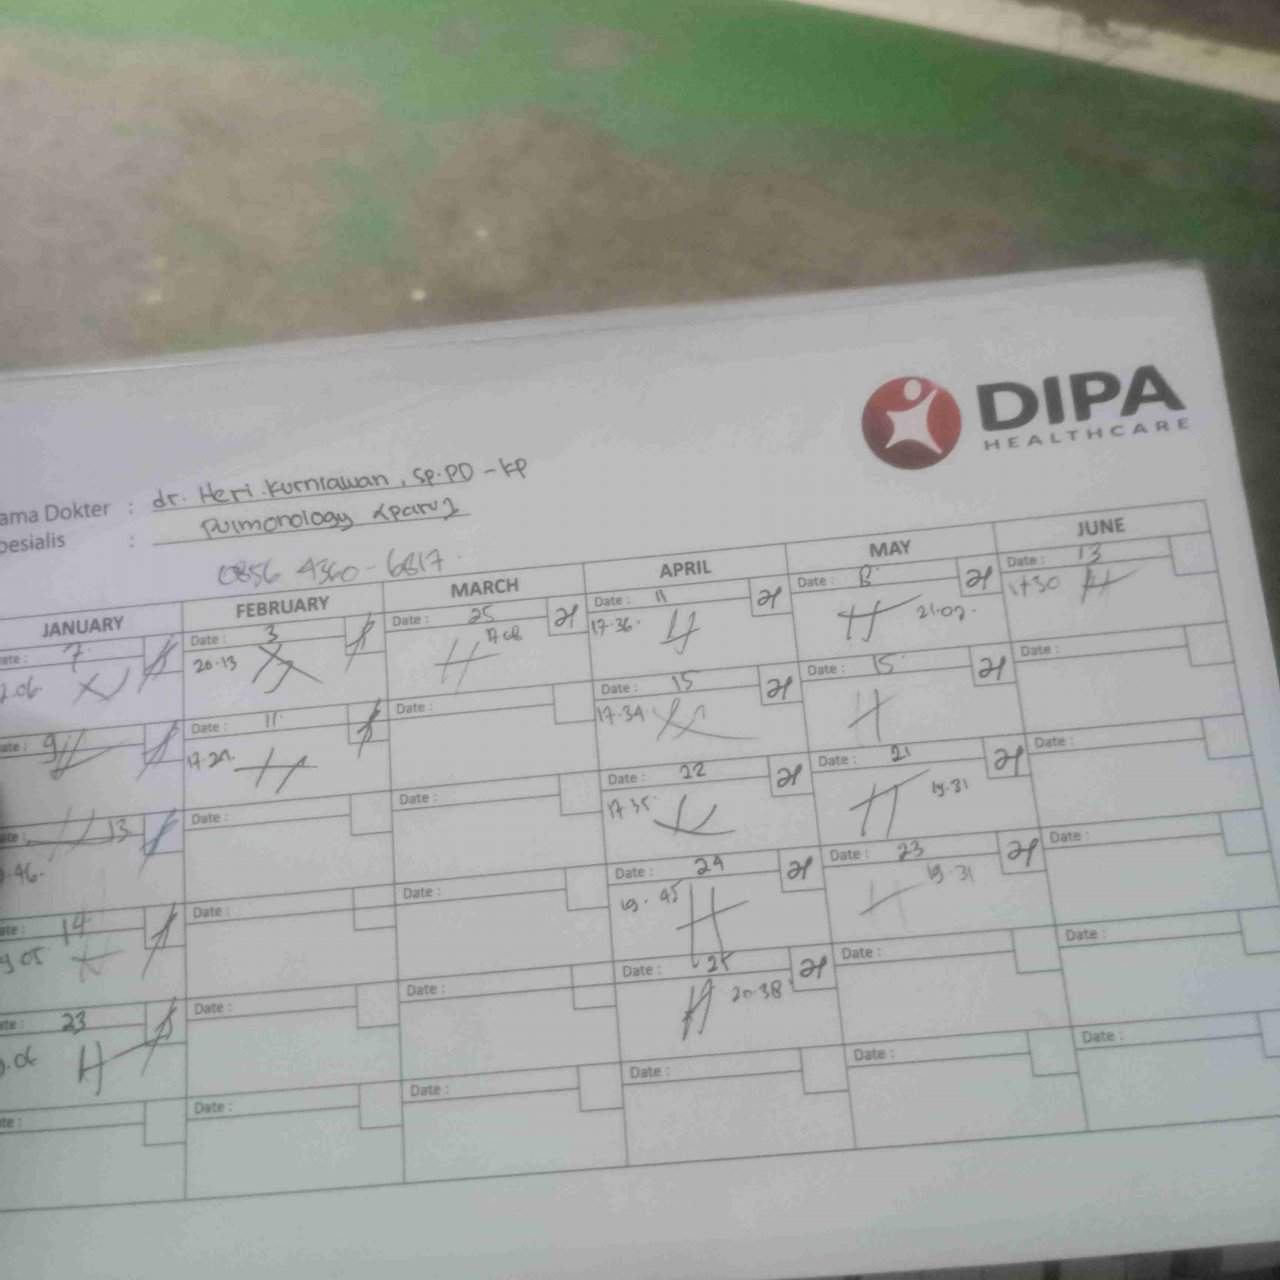 DIPA
HEALTHCARE
ama Dokter : dr. Heri Kurniawan, Sp.PD-KP
pesialis : Pulmonology <paru>
0856 4360-6817
JANUARY FEBRUARY MARCH APRIL MAY JUNE
ate: 7 Date: 3 Date: 25 Date: 11 Date: 8 Date: 13
.06 20.13 17.08 17.36 21.02 1730
ate: 9 Date: 11 Date: Date: 15 Date: 15 Date:
17.34
ate: 13 Date: Date: Date: 22 Date: 21 Date:
.46 17.35 19.31
ate: 14 Date: Date: Date: 24 Date: 23 Date:
05 19.45 19.31
ate: 23 Date: Date: Date: Date: Date:
.06 20.38
te: Date: Date: Date: Date: Date: